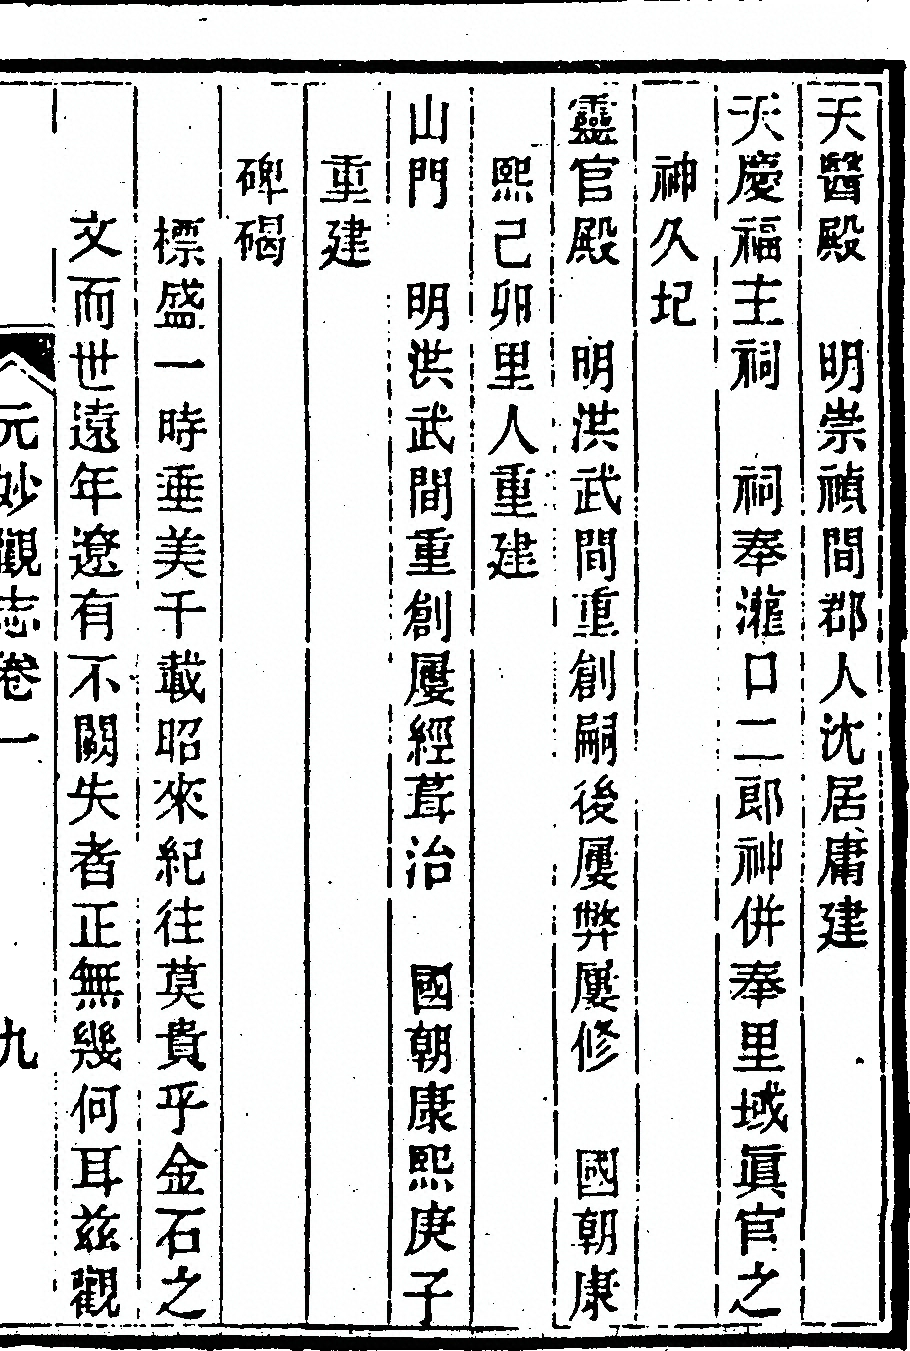 天醫殿　明崇禎間郡人沈居庸建
天慶福主祠　祠奉灌口二郎神併奉里域眞官之
神久圮
靈官殿　明洪武間重創嗣後屢弊屢修　國朝康
熙己卯里人重建
山門　明洪武間重創屢經葺治　國朝康熙庚子
重建
碑碣
標盛一時垂美千載昭來紀往莫貴乎金石之
文而世遠年遼有不闕失者正無幾何耳茲觀
元妙觀志卷一　九